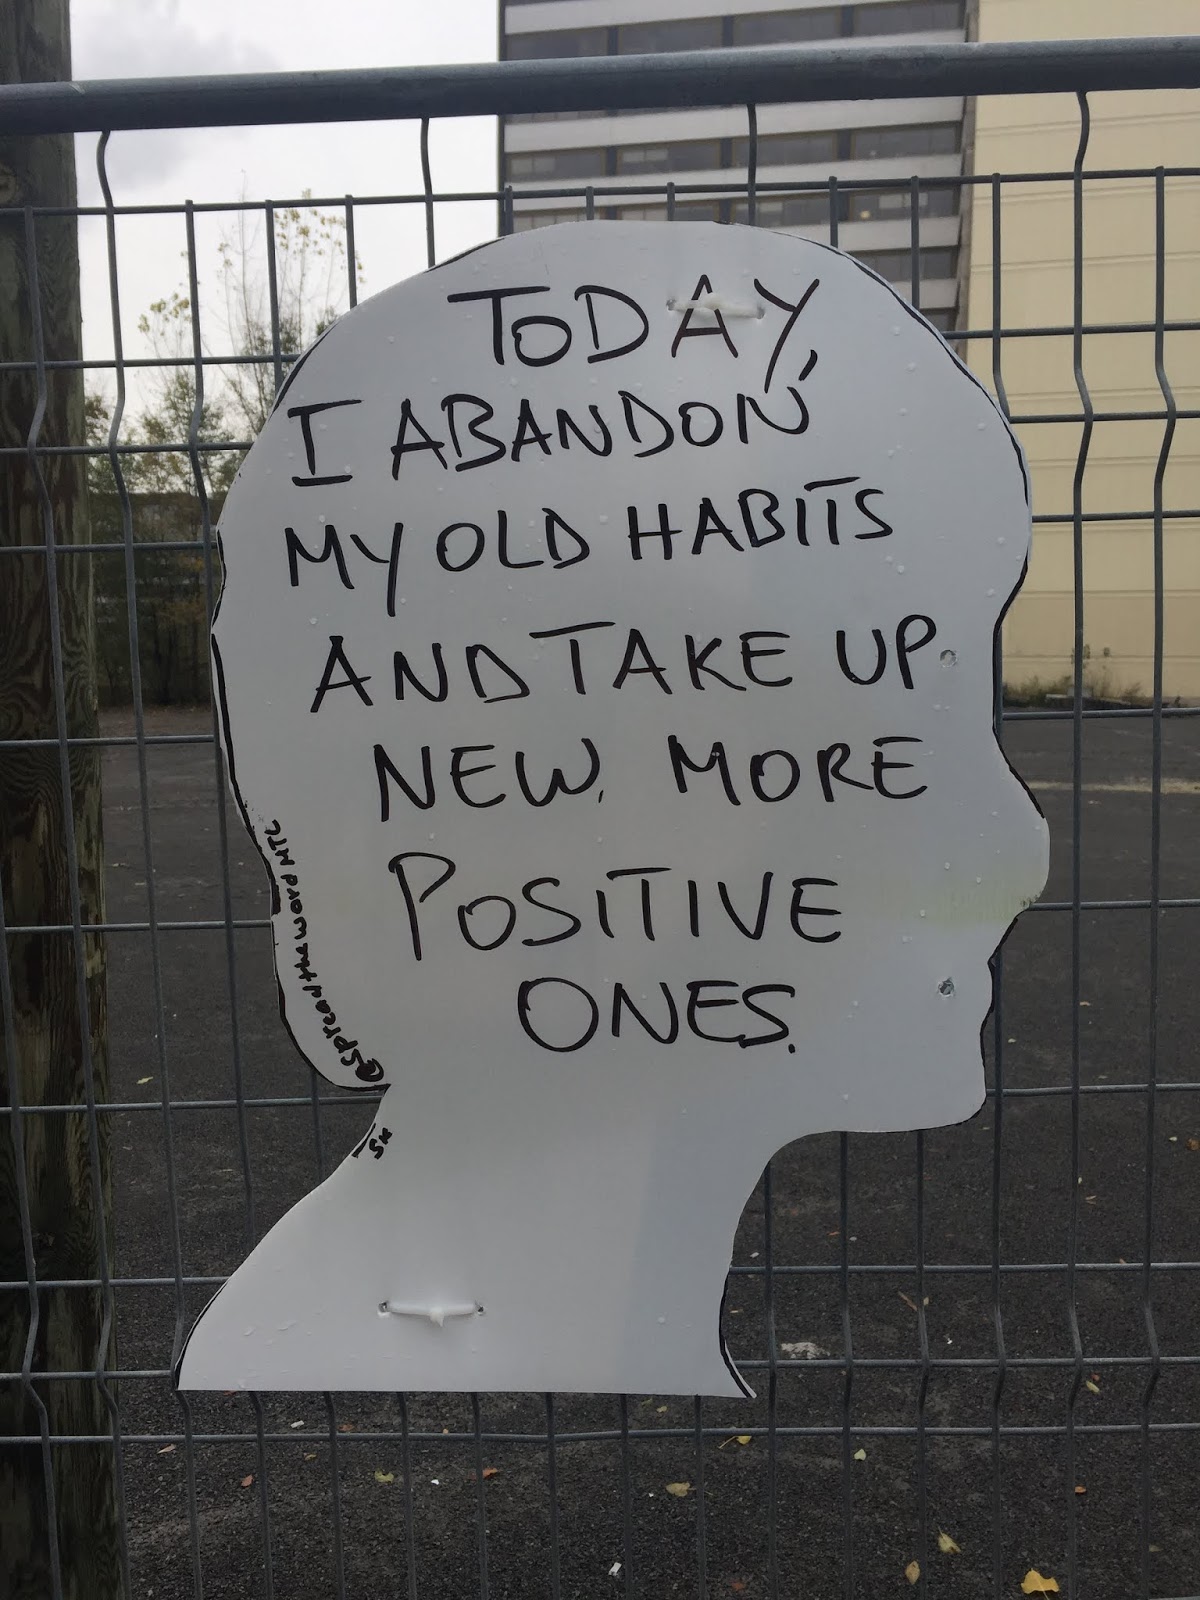 TODAY,
I ABANDON
MY OLD HABITS
AND TAKE UP
NEW, MORE
POSITIVE
ONES.
@spreadthewordMTL